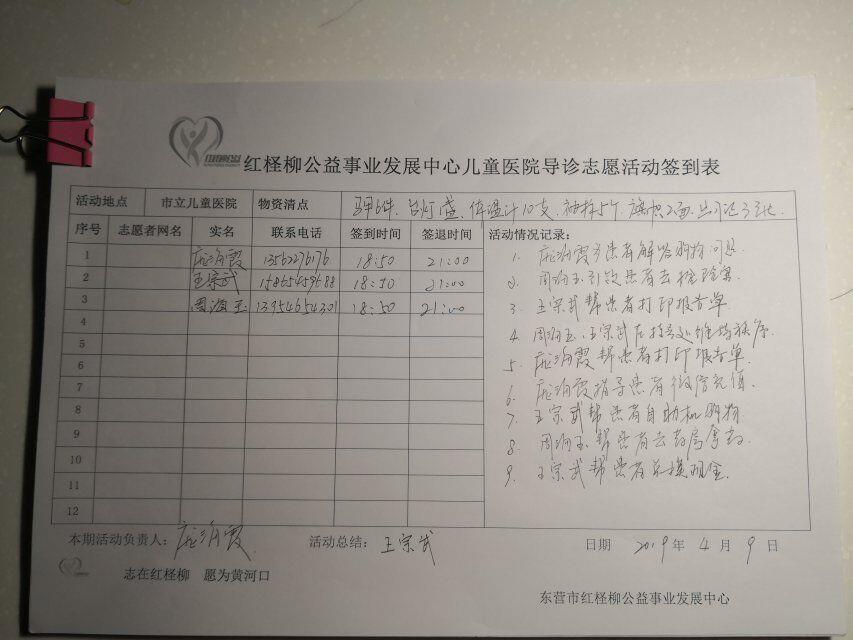 红柽柳公益事业发展中心儿童医院导诊志愿活动签到表
活动地点 市立儿童医院 物资清点 马甲6件、台灯 盏、体温计10支、袖标5个、旗帜2面
序号 志愿者网名 实名 联系电话 签到时间 签退时间 活动情况记录:
1 庞洵霞 1356227676 18:50 21:00
2 王宗武 15865459688 18:50 21:00
3 周洵玉 13954654301 18:50 21:00
4
5
6
7
8
9
10
11
12
1. 庞洵霞为患者解答购物问题
2. 周洵玉引领患者去
3. 王宗武帮患者打印报告单
4. 周洵玉、王宗武在挂号处维持秩序
5. 庞洵霞帮患者打印报告单
6. 庞洵霞指导患者微信充值
7. 王宗武帮患者自助机购物
8. 周洵玉帮患者去药房拿药
9. 王宗武帮患者兑换现金
本期活动负责人: 庞洵霞 活动总结: 王宗武 日期 2019年4月9日
志在红柽柳 愿为黄河口
东营市红柽柳公益事业发展中心